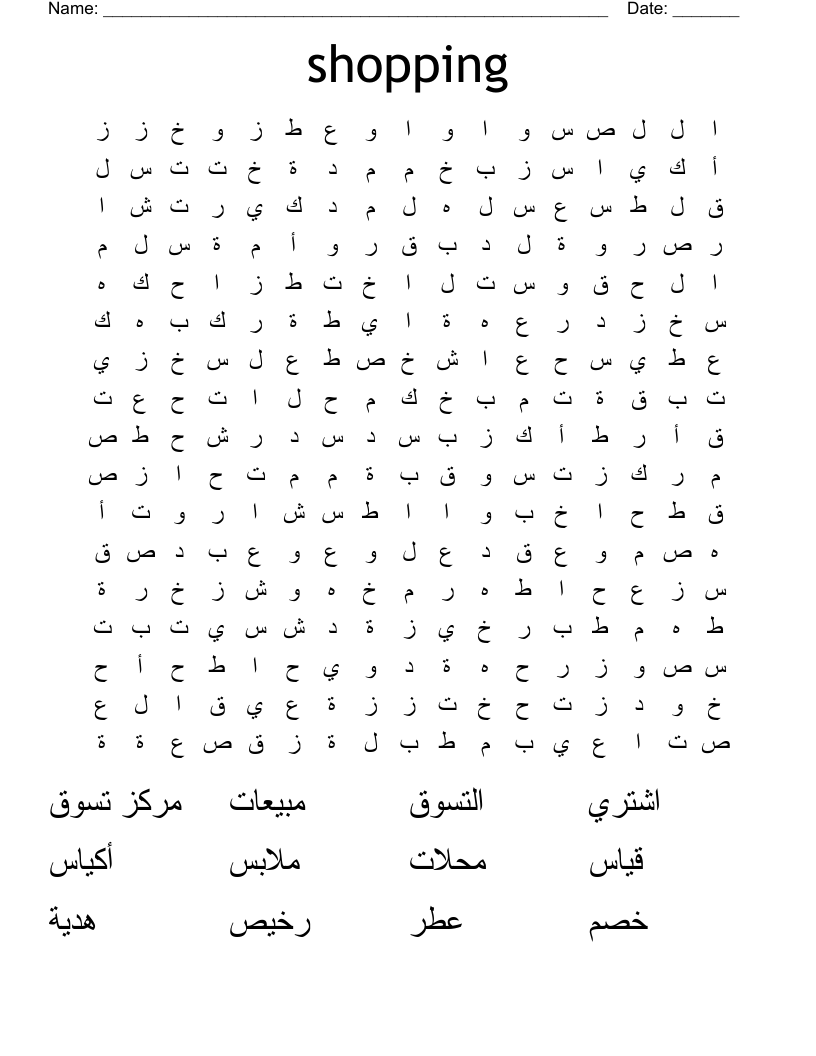 Name: ______________________________________________________ Date: _______
shopping
ا ل ل ص س و ا و ا و ع ط ز و خ ز ز
أ ك ي ا س ز ب خ م م د ة خ ت ت س ل
ق ل ط س ع س ل ه ل م د ك ي ر ت ش ا
ر ص ر و ة ل د ب ق ر و أ م ة س ل م
ا ل ح ق و س ت ل ا خ ت ط ز ا ح ك ه
س خ ز د ر ع ه ة ا ي ط ة ر ك ب ه ك
ع ط ي س ح ع ا ش خ ص ط ع ل س خ ز ي
ت ب ق ة ت م ب خ ك م ح ل ا ت ح ع ت
ق أ ر ط أ ك ز ب س د س د ر ش ح ط ص
م ر ك ز ت س و ق ب ة م م ت ح ا ز ص
ق ط ح ا خ ب و ا ا ط س ش ا ر و ت أ
ه ص م و ع ق د ع ل و ع و ع ب د ص ق
س ز ع ح ا ط ه ر م خ ه و ش ز خ ر ة
ط ه م ط ب ر خ ي ز ة د ش س ي ت ب ت
س ص و ز ر ح ه ة د و ي ح ا ط ح أ ح
خ و د ز ت ح خ ت ز ز ة ع ي ق ا ل ع
ص ت ا ع ي ب م ط ب ل ة ز ق ص ع ة ة
اشتري التسوق مبيعات مركز تسوق
قياس محلات ملابس أكياس
خصم عطر رخيص هدية